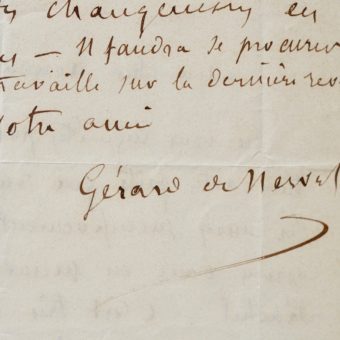 changemens en
— Il faudra se procurer
travaille sur la dernière
Votre ami
Gérard de Nerval